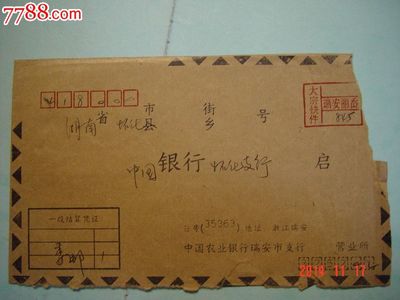 7788.com
418000
大宗快件
瑞安邮局
845
湖南省 怀化县市 乡街 号
中国 银行 怀化支行 启
一般结算凭证
1
行号(35363) 地址 浙江瑞安
中国农业银行瑞安市支行 营业所
2010 11 17